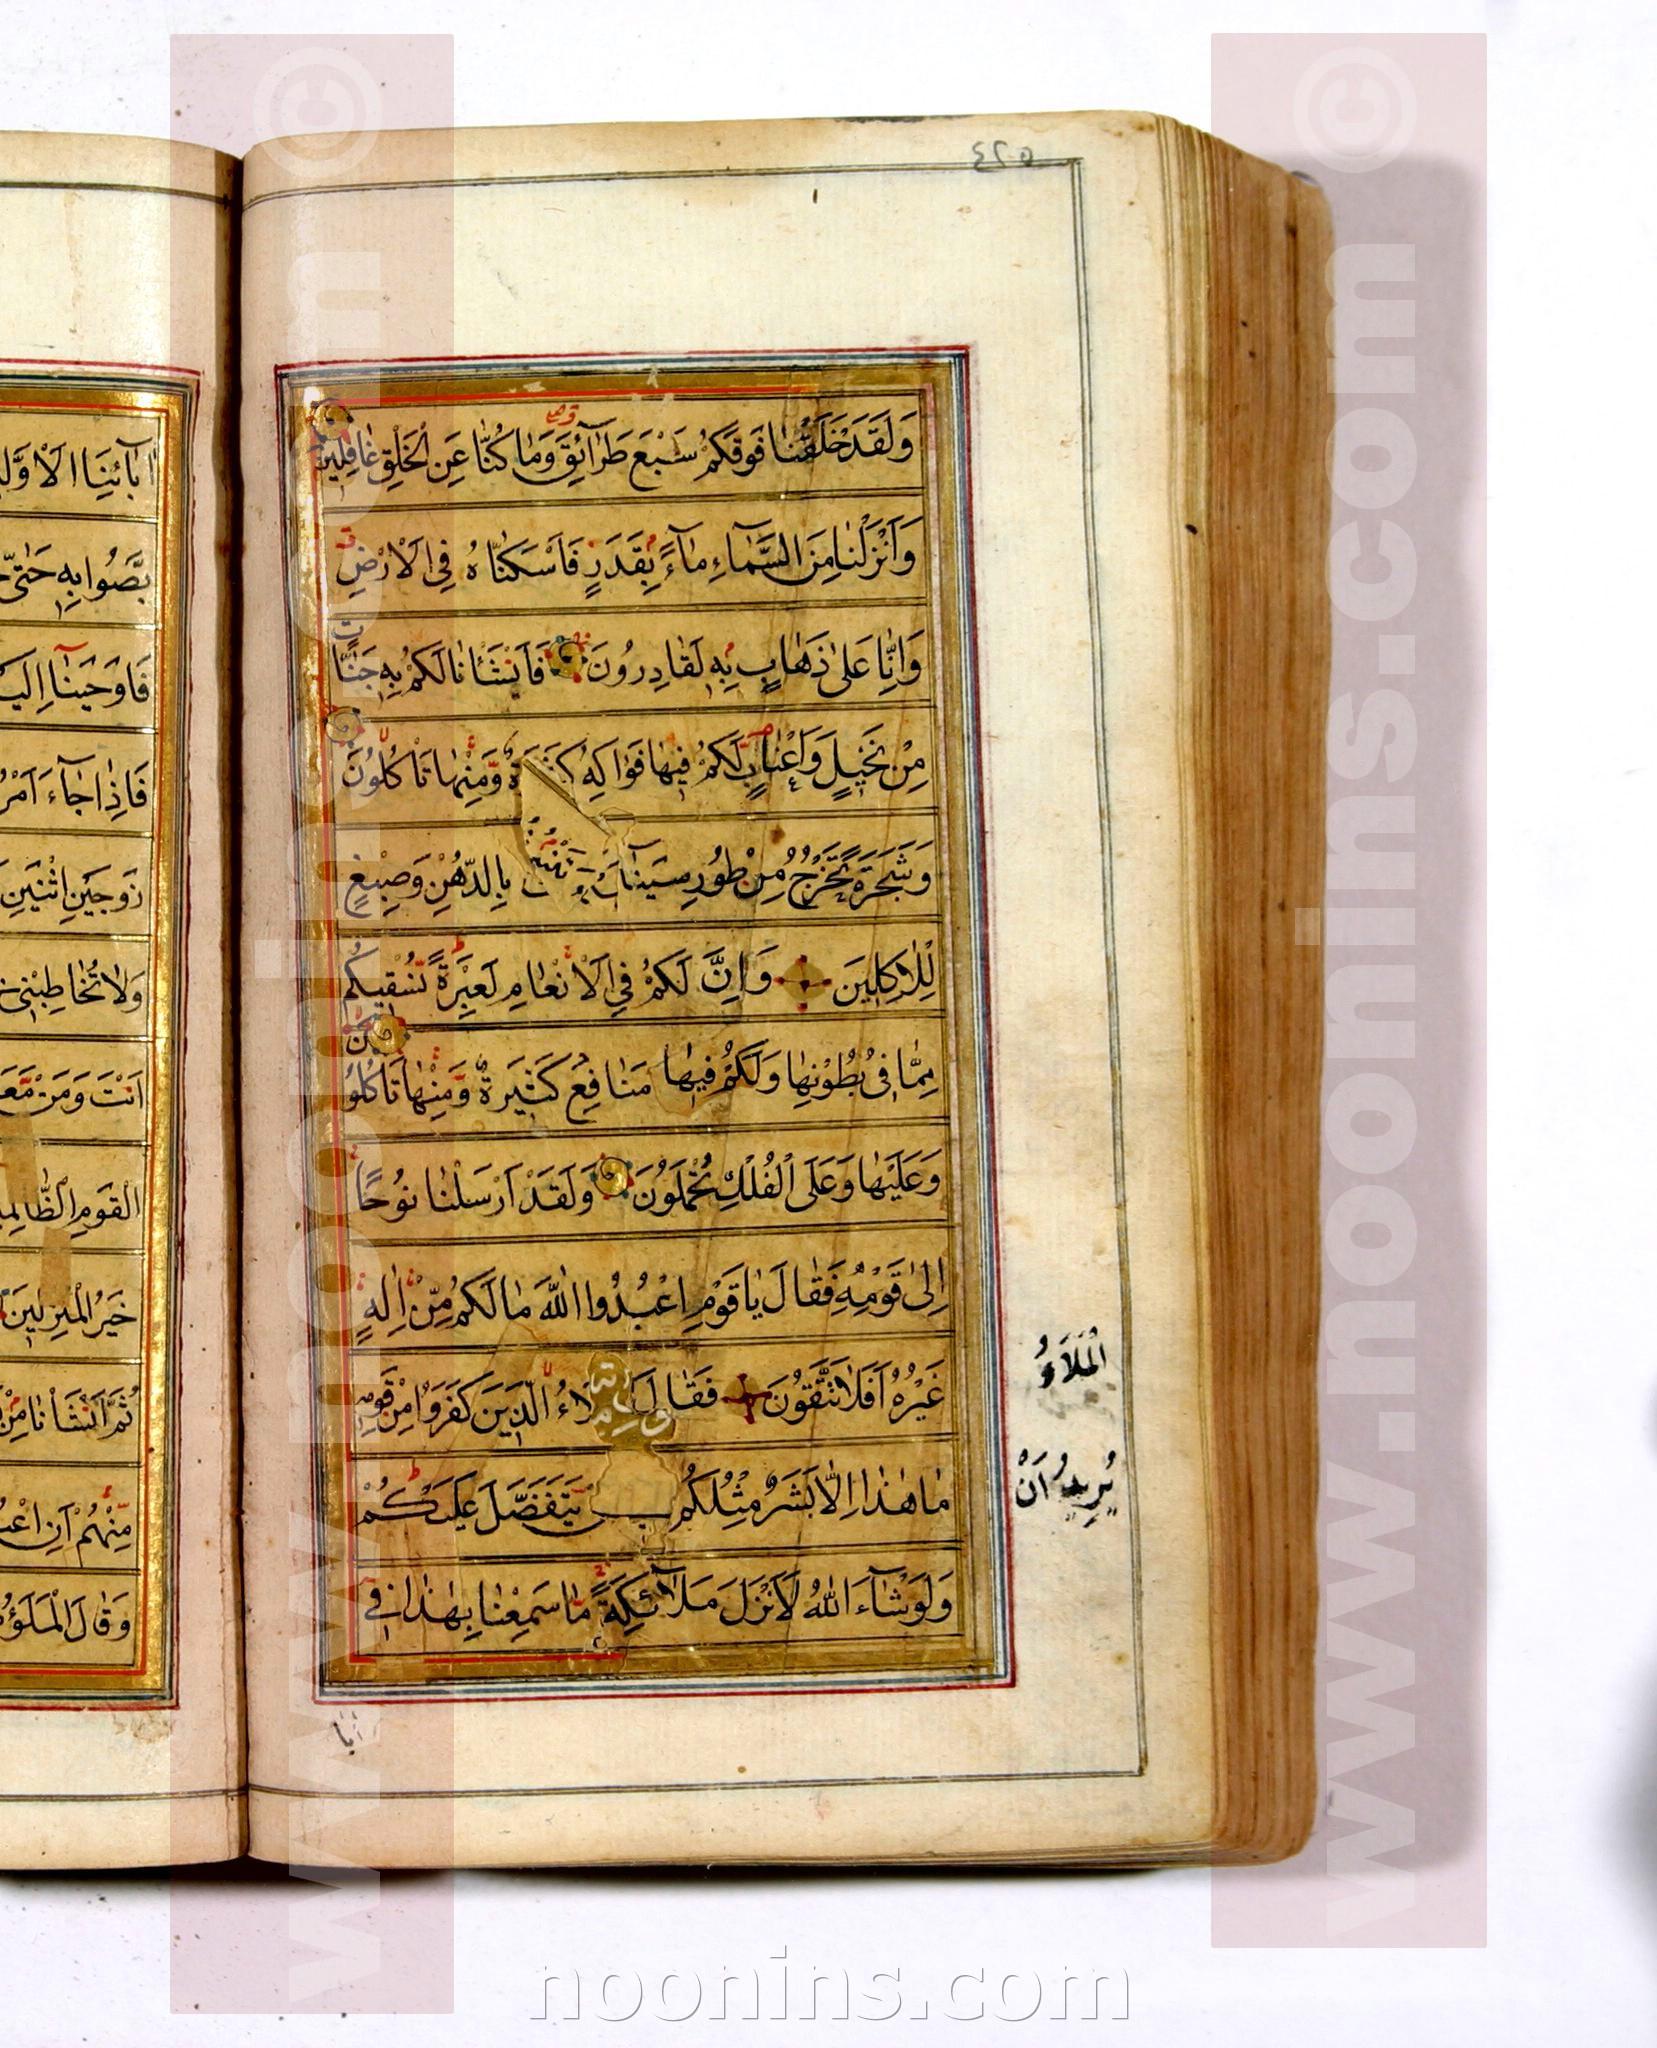 ٤٢٥
وَلَقَدْ خَلَقْنٰا فَوْقَكُمْ سَبْعَ طَرٰآئِقَ وَمٰا كُنّٰا عَنِ الْخَلْقِ غٰافِلِينَ
وَاَنْزَلْنٰا مِنَ السَّمٰاءِ مٰآءً بِقَدَرٍ فَاَسْكَنّٰاهُ فِي الْاَرْضِ
وَاِنّٰا عَلىٰ ذَهٰابٍ بِهِ لَقٰادِرُونَ فَاَنْشَأْنٰا لَكُمْ بِهِ جَنّٰاتٍ
مِنْ نَخِيلٍ وَاَعْنٰابٍ لَكُمْ فِيهٰا فَوٰاكِهُ كَثِيرَةٌ وَمِنْهٰا تَأْكُلُونَ
وَشَجَرَةً تَخْرُجُ مِنْ طُورِ سَيْنٰآءَ تَنْبُتُ بِالدُّهْنِ وَصِبْغٍ
لِلْاٰكِلِينَ وَاِنَّ لَكُمْ فِي الْاَنْعٰامِ لَعِبْرَةً نُسْقِيكُمْ
مِمّٰا فِي بُطُوْنِهٰا وَلَكُمْ فِيهٰا مَنٰافِعُ كَثِيرَةٌ وَمِنْهٰا تَأْكُلُونَ
وَعَلَيْهٰا وَعَلَى الْفُلْكِ تُحْمَلُونَ وَلَقَدْ اَرْسَلْنٰا نُوحًا
اِلىٰ قَوْمِهِ فَقٰالَ يٰا قَوْمِ اعْبُدُوا اللّٰهَ مٰا لَكُمْ مِنْ اِلٰهٍ
غَيْرُهُ اَفَلٰا تَتَّقُونَ فَقٰالَ الْمَلَاءُ الَّذِينَ كَفَرُوا مِنْ قَوْمِهِ
مٰا هٰذٰا اِلّٰا بَشَرٌ مِثْلُكُمْ يَتَفَضَّلَ عَلَيْكُمْ
وَلَوْ شٰآءَ اللّٰهُ لَاَنْزَلَ مَلٰآئِكَةً مٰا سَمِعْنٰا بِهٰذٰا فِي
الْمَلَاءُ
يُرِيدُ اَنْ
اٰبٰا
اٰبٰآئِنَا الْاَوَّلِ
بَّصُوا بِهِ حَتّٰى
فَاَوْحَيْنٰا اِلَيْ
فَاِذٰا جٰآءَ اَمْرُ
زَوْجَيْنِ اثْنَيْنِ
وَلٰا تُخٰاطِبْنِي
اَنْتَ وَمَنْ مَعَ
الْقَوْمِ الظّٰالِمِ
خَيْرُ الْمُنْزِلِينَ
ثُمَّ اَنْشَأْنٰا مِنْ
مِنْهُمْ اَنِ اعْبُ
وَقٰالَ الْمَلَؤُ
www.noonins.com ©
www.noonins.com ©
noonins.com